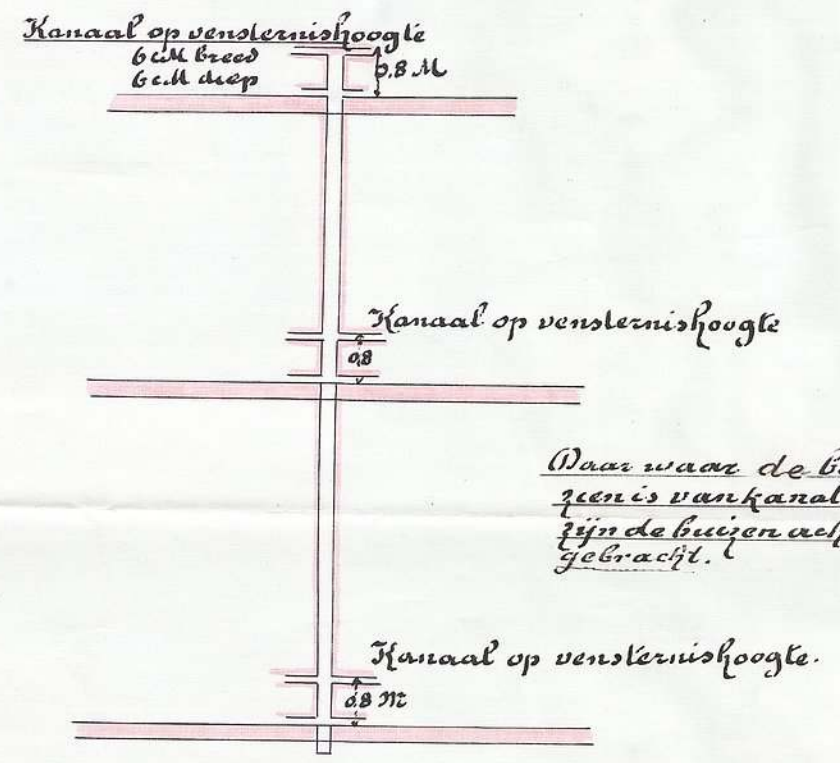 Kanaal op vensternishoogte
6 cM breed
6 cM diep
0.8 M
Kanaal op vensternishoogte
0,8
Daar waar de b
zien is van kanal
zijn de buizen
gebracht.
Kanaal op vensternishoogte.
0.8 M